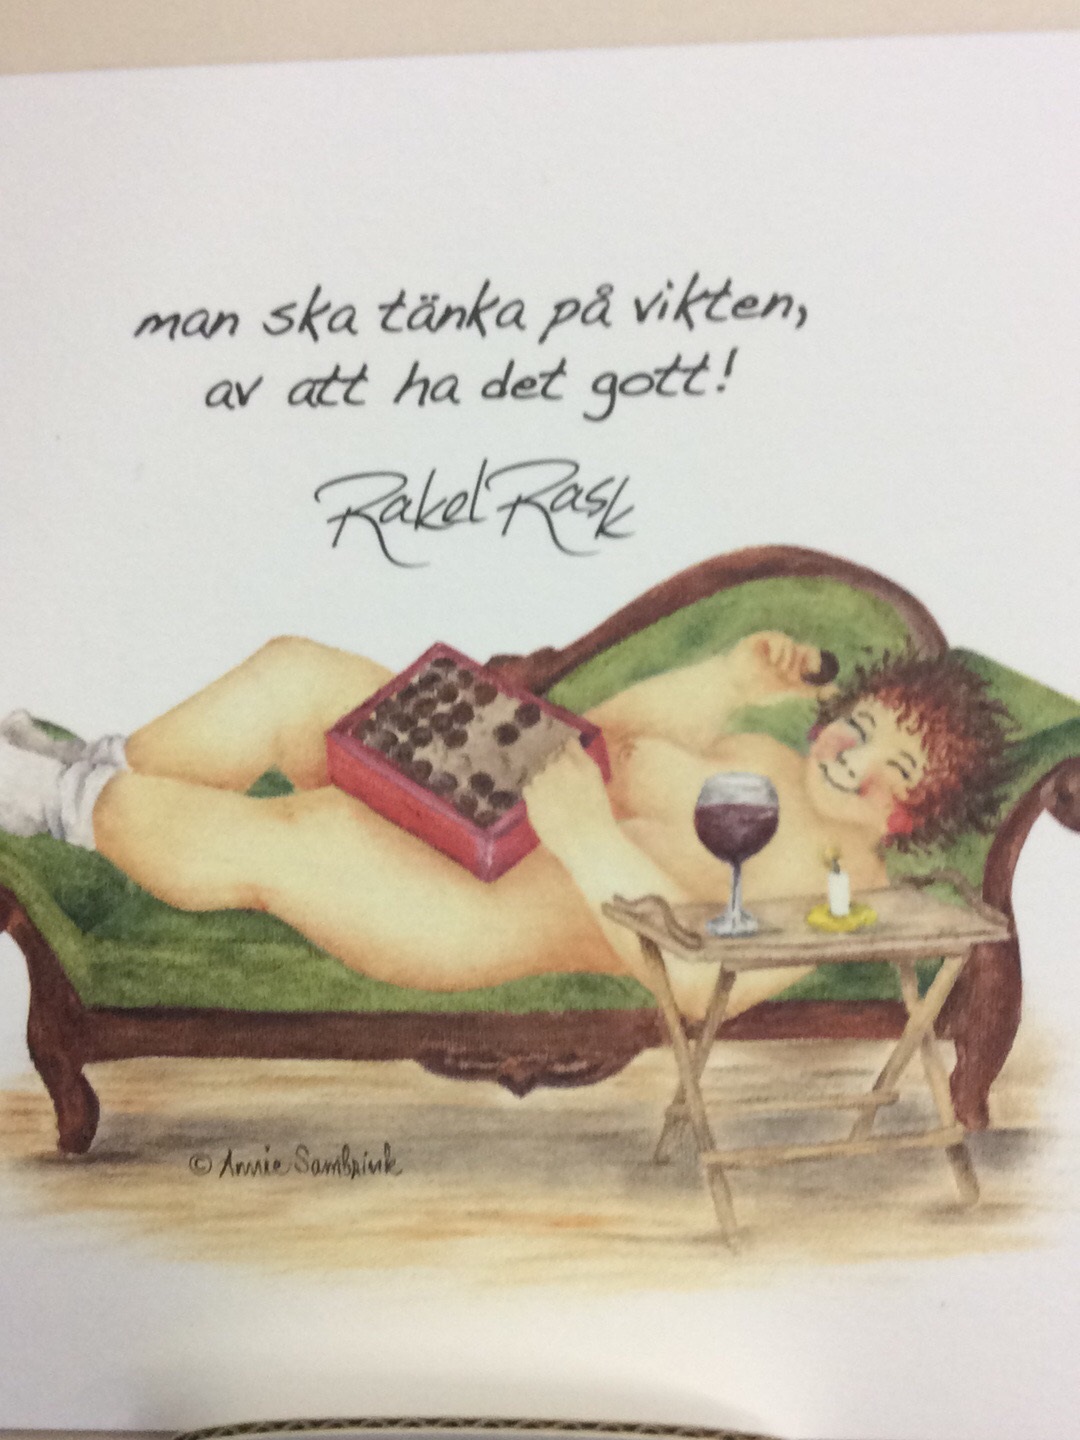 man ska tänka på vikten,
av att ha det gott!
Rakel Rask
© Annie Sambrink